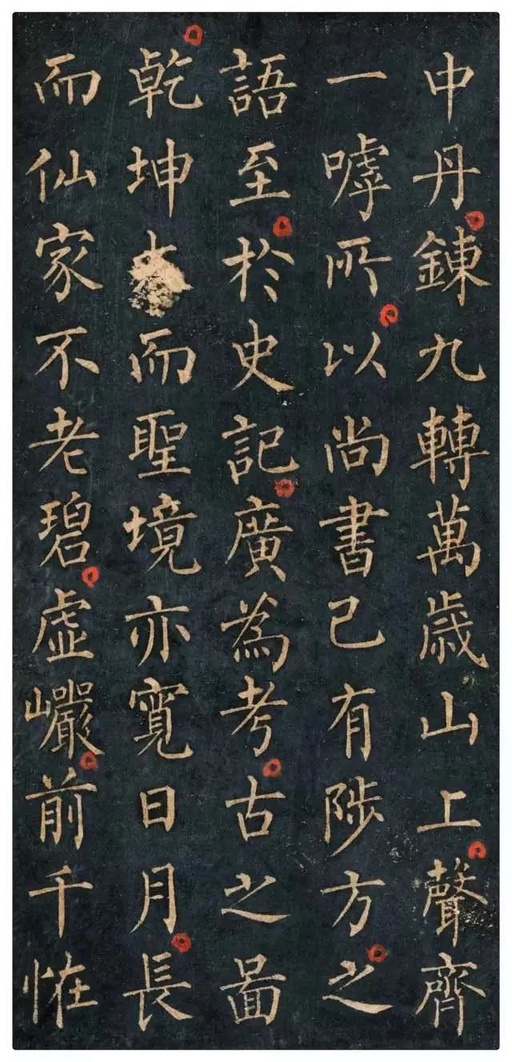 中丹鍊九轉萬歳山上聲齊
一嘑所以尚書已有陟方之
語至於史記廣為考古之啚
乾坤大而聖境亦寬日月長
而仙家不老碧虛巗前千恠